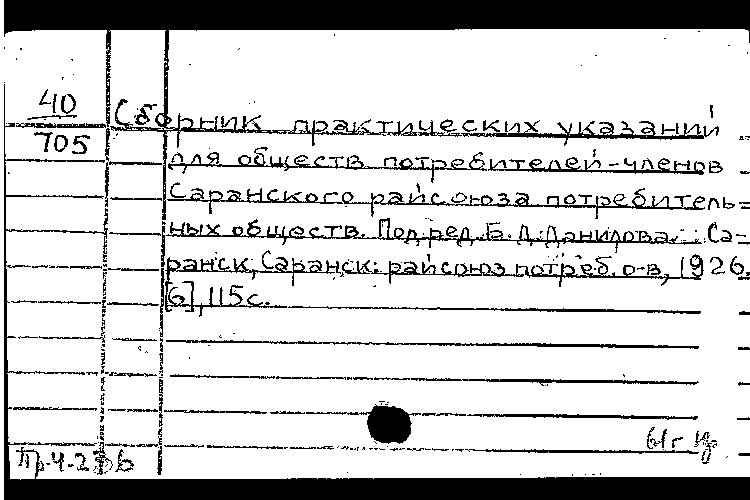 40
705
Сборник практических указаний
для обществ потребителей-членов
Саранского райсоюза потребитель=
ных обществ. Под ред. Б. Д. Данилова. Са=
ранск, Саранск: райсоюз потреб. о-в, 1926.
[6], 115 с.
61г
Пр-4-2